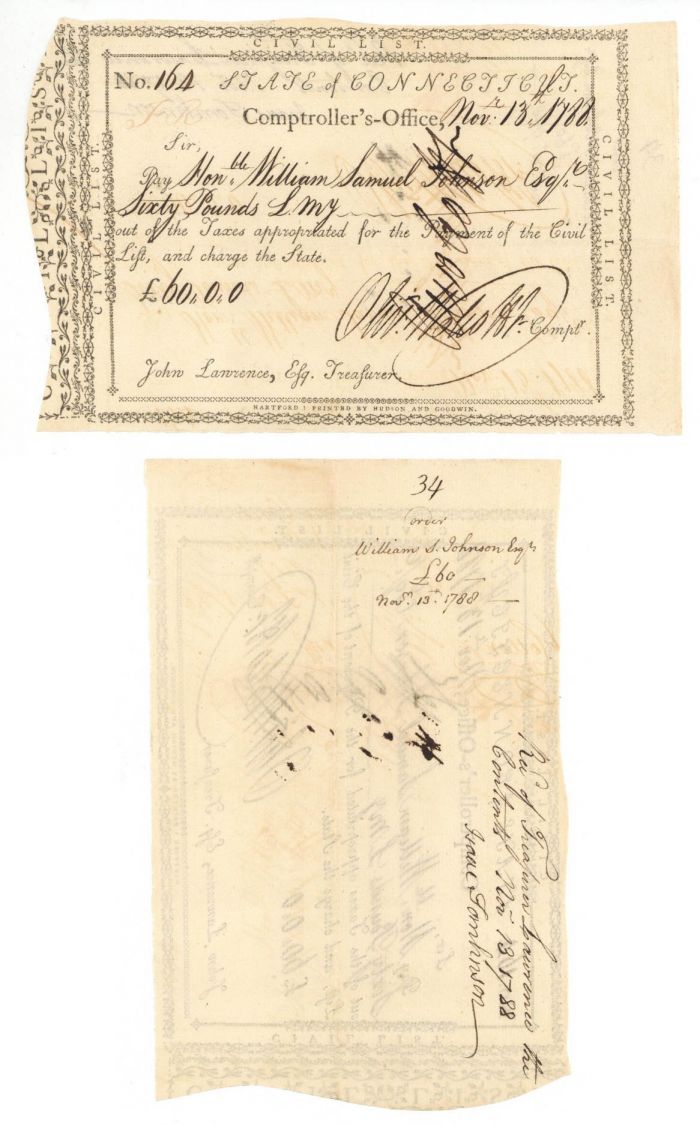 CIVIL LIST.
No. 164 STATE of CONNECTICUT.
Comptroller's-Office, Novr. 13th. 1788
Sir,
Pay Honble William Samuel Johnson Esqr.
Sixty Pounds L. My
out of the Taxes appropriated for the Payment of the Civil
Lift, and charge the State.
£60.0.0
Comptr.
John Lawrence, Efq. Treafurer.
HARTFORD: PRINTED BY HUDSON AND GOODWIN.
CIVIL LIST.
CIVIL LIST.
34
order
William S. Johnson Esqr
£60
Novr. 13th. 1788
Recd of Treafurer Lawrence the
Contents Novr 13 1788
Isaac Tomlinson